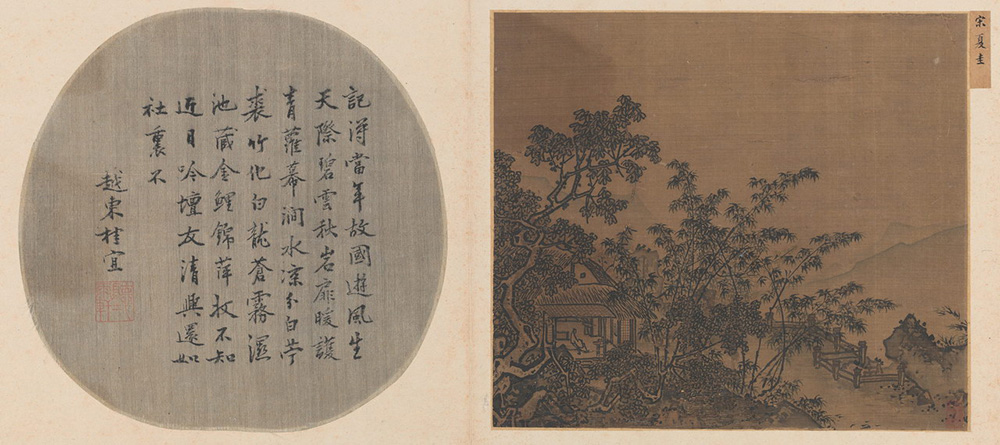 記得當年故國遊風生
天際碧雲秋岩扉暖護
青蘿幕澗水涼分白苧
裘竹化白龍蒼霧濕
池藏金鯉錦萍收不知
近日吟壇友清興還如
社裏不
越東桂宜
宋夏圭